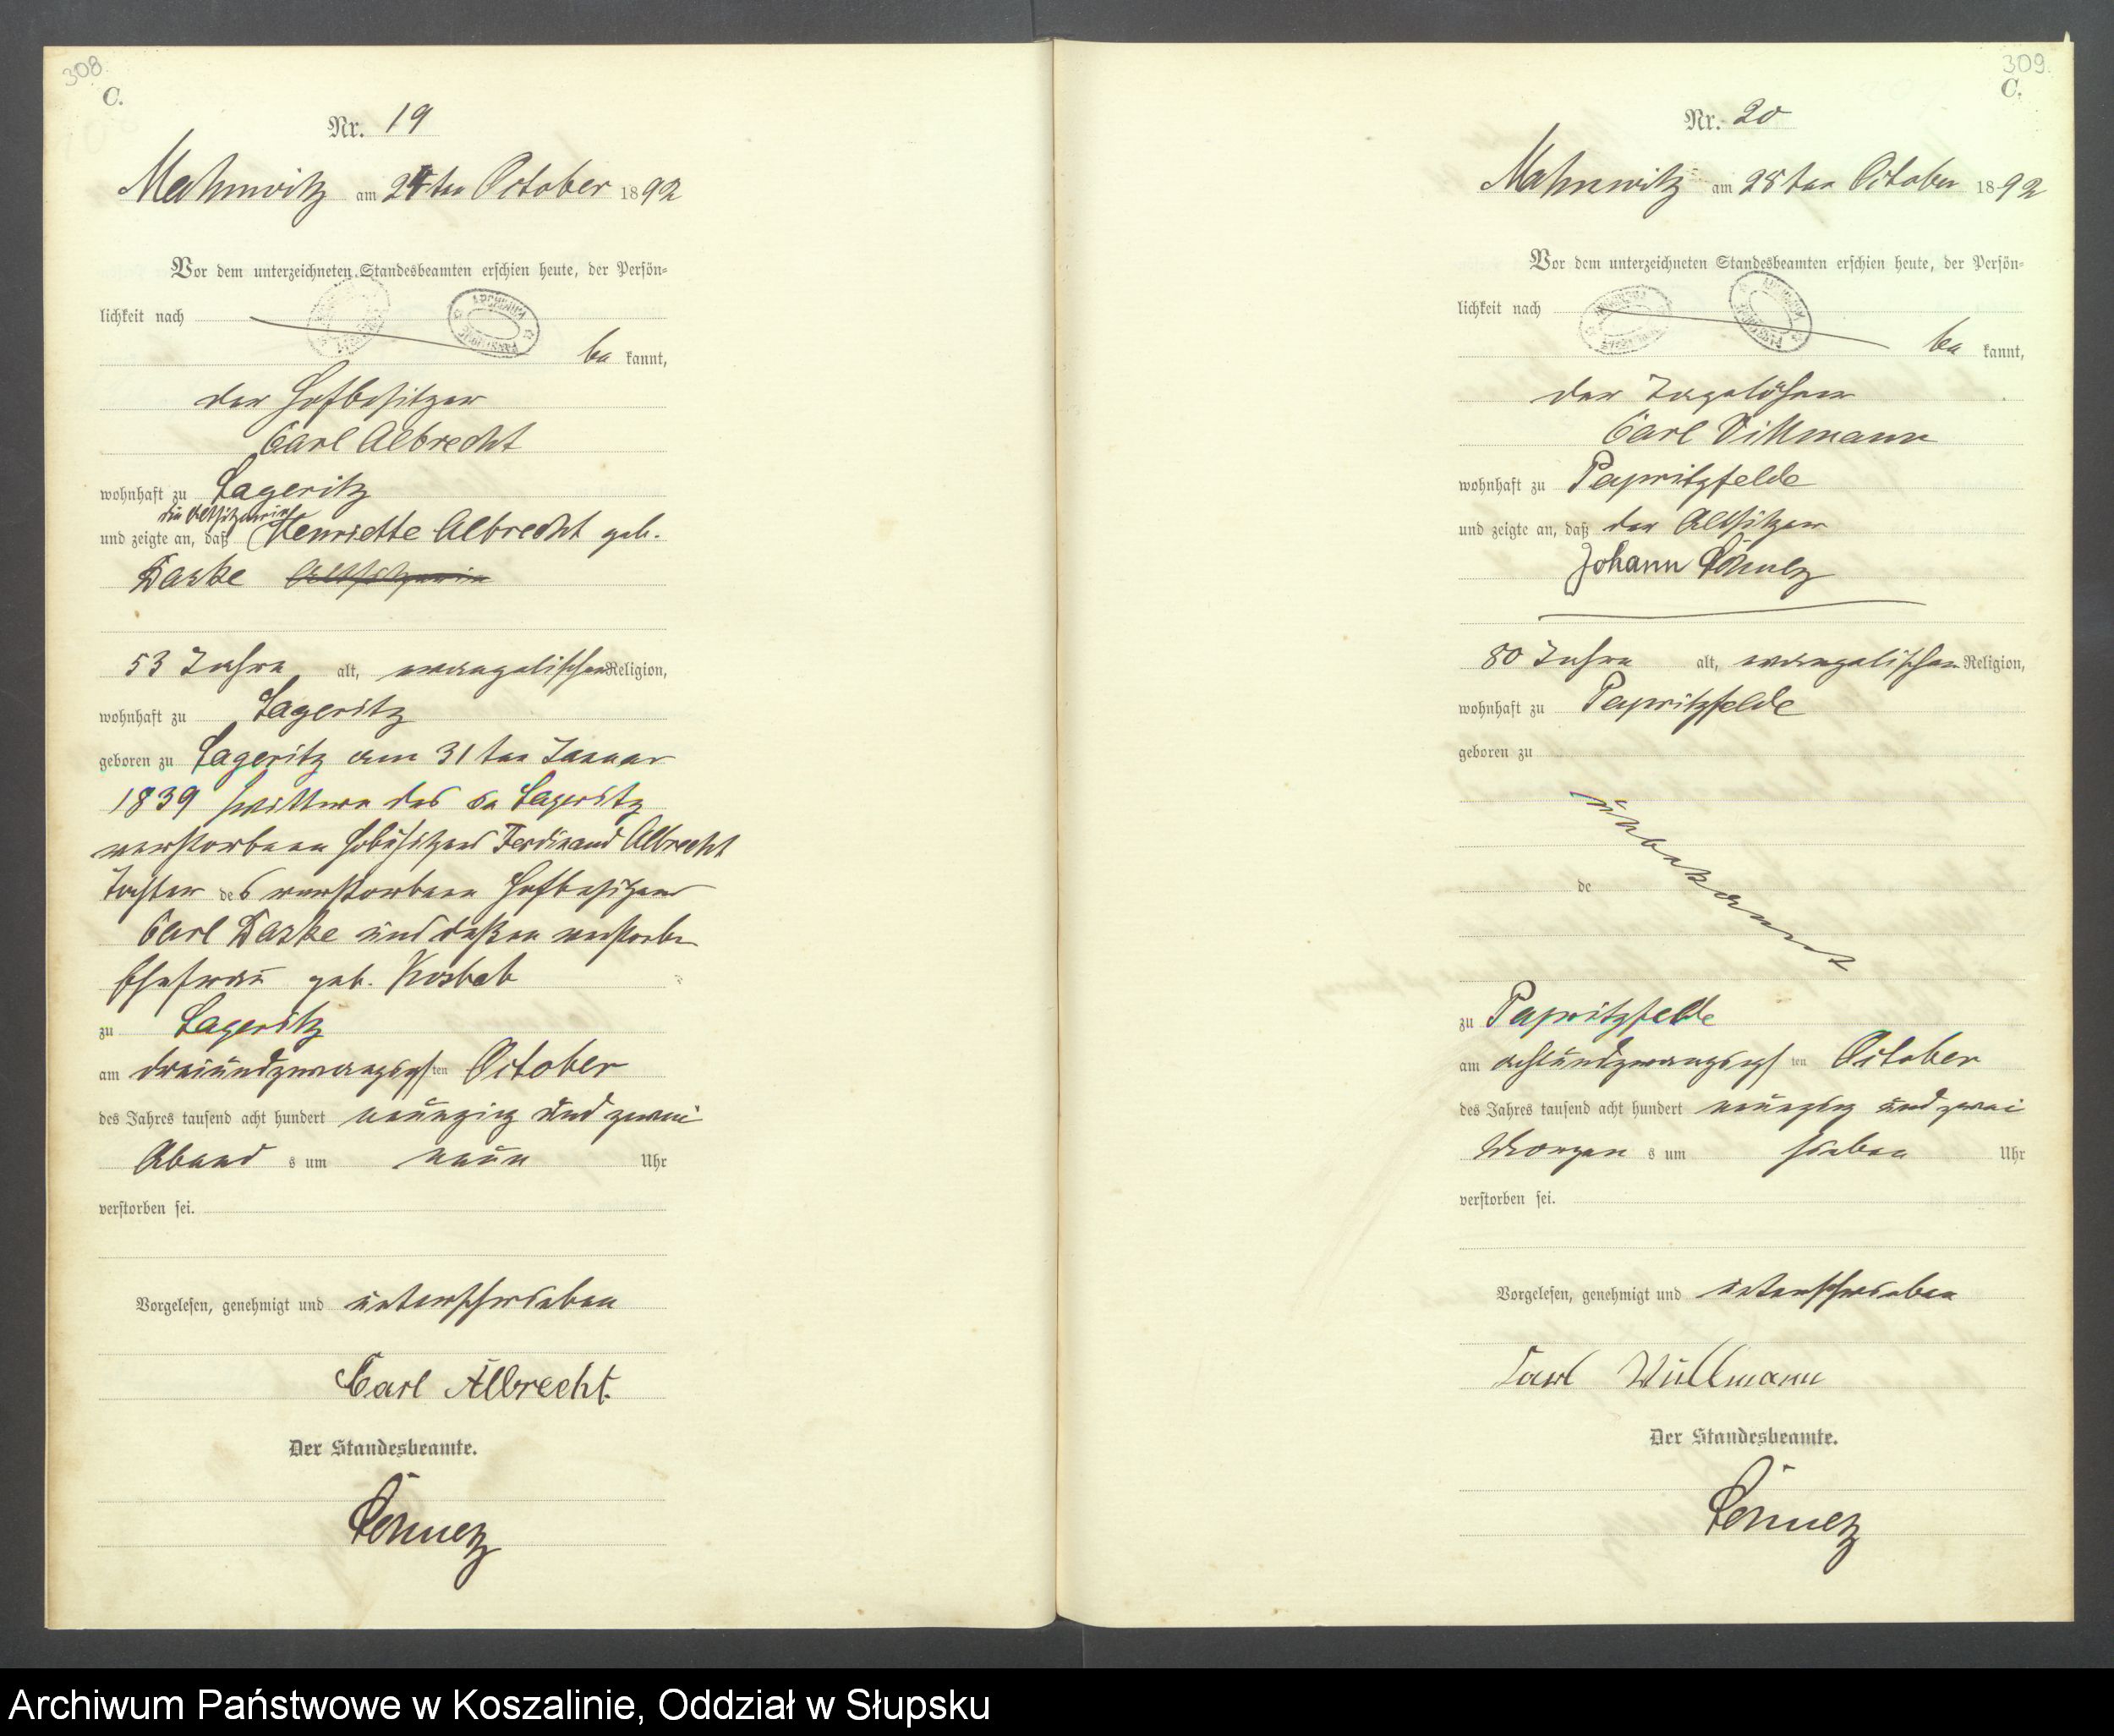 308.
C.
Nr. 19
Mahnwitz am 24ten October 1892
Vor dem unterzeichneten Standesbeamten erschien heute, der Persön-
lichkeit nach
be kannt,
der Hofbesitzer
Carl Albrecht
wohnhaft zu Lageritz
die Altsitzerin
und zeigte an, daß Henriette Albrecht geb.
Daske Altsitzerin
53 Jahre alt, evangelischer Religion,
wohnhaft zu Lageritz
geboren zu Lageritz am 31ten Januar
1839 Wittwe des zu Lageritz
verstorbenen Ferdinand Albrecht
Tochter des verstorbenen Hofbesitzers
Carl Daske und dessen verstorbe
Ehefrau geb. Kosbab
zu Lageritz
am dreiundzwanzigsten October
des Jahres tausend acht hundert neunzig und zwei
Abend s um neun Uhr
verstorben sei.
Vorgelesen, genehmigt und unterschrieben
Carl Albrecht.
Der Standesbeamte.
Schulz
309.
C.
Nr. 20
Mahnwitz am 28ten October 1892
Vor dem unterzeichneten Standesbeamten erschien heute, der Persön-
lichkeit nach
be kannt,
der Tagelöhner
Carl
wohnhaft zu Papritzfelde
und zeigte an, daß der Altsitzer
Johann Schulz
80 Jahre alt, evangelischer Religion,
wohnhaft zu Papritzfelde
geboren zu
unbekannt
de
zu Papritzfelde
am achtundzwanzigsten October
des Jahres tausend acht hundert neunzig und zwei
Morgen s um sieben Uhr
verstorben sei.
Vorgelesen, genehmigt und unterschrieben
Carl
Der Standesbeamte.
Schulz
Archiwum Państwowe w Koszalinie, Oddział w Słupsku